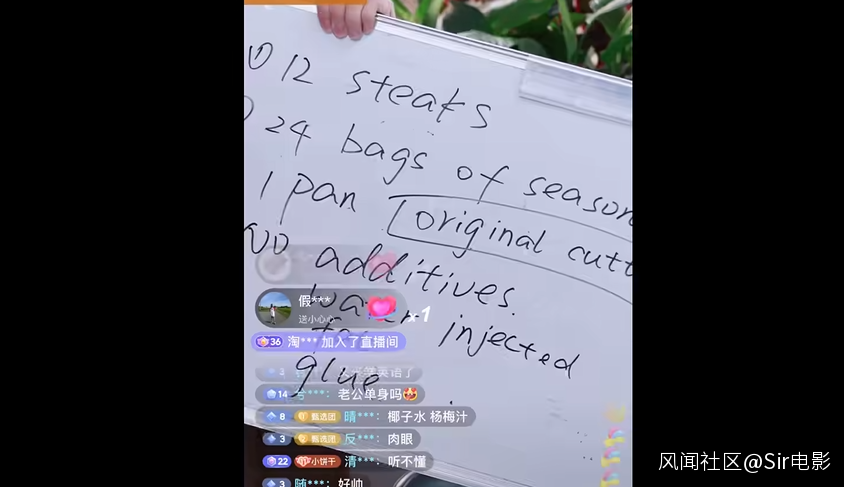 ① 12 steaks
24 bags of season
1 pan original cutt
additives
water injected
glue
假***
送小心心
x1
36 淘*** 加入了直播间
3
14 老公单身吗
8 甄选团 晴***: 椰子水 杨梅汁
3 甄选团 反***: 肉眼
22 小饼干 清***: 听不懂
3 随***: 好帅
风闻社区@Sir电影